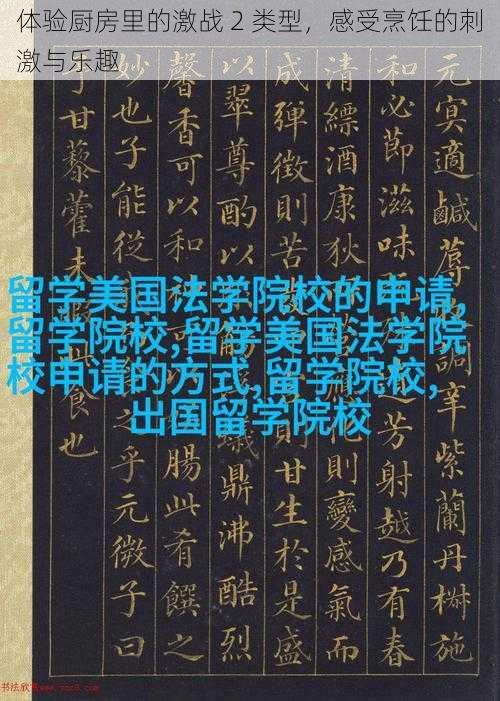 体验厨房里的激战 2 类型，感受烹饪的刺
激与乐趣
留学美国法学院校的申请,
留学院校,留学美国法学院
校申请的方式,留学院校,
出国留学院校
元冥適鹹蓐調辛紫蘭丹椒施
和必節滋味芳射越乃有春
清縹酒康狄應化則變感氣而
成彈徵則苦發則甘生於是盛
以翠尊酌以鼎沸酷烈
馨香可以和神腸此肴饌之
妙也子能從之乎元微子曰
予甘藜藿未暇食也
书法欣赏